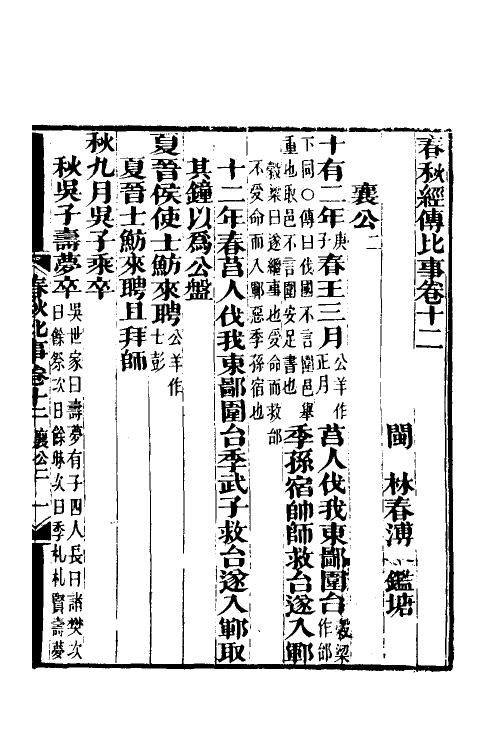 春秋經傳比事卷十二
閩 林春溥 鑑塘
襄公二
十有二年庚子春王三月公羊作正月莒人伐我東鄙圍台穀梁作邰
下同○傳曰伐國不言圍邑舉重也取邑不言圍安足書也季孫宿帥師救台遂入鄆
穀梁曰遂繼事也受命而救邰不受命而入鄆惡季孫宿也
十二年春莒人伐我東鄙圍台季武子救台遂入鄆取
其鐘以爲公盤
夏晉侯使士魴來聘公羊作士彭
夏晉士魴來聘且拜師
秋九月吳子乘卒
秋吳子壽夢卒吳世家曰壽夢有子四人長曰諸樊次曰餘祭次曰餘眜次曰季札札賢壽夢
春秋比事卷十二 襄公二 一